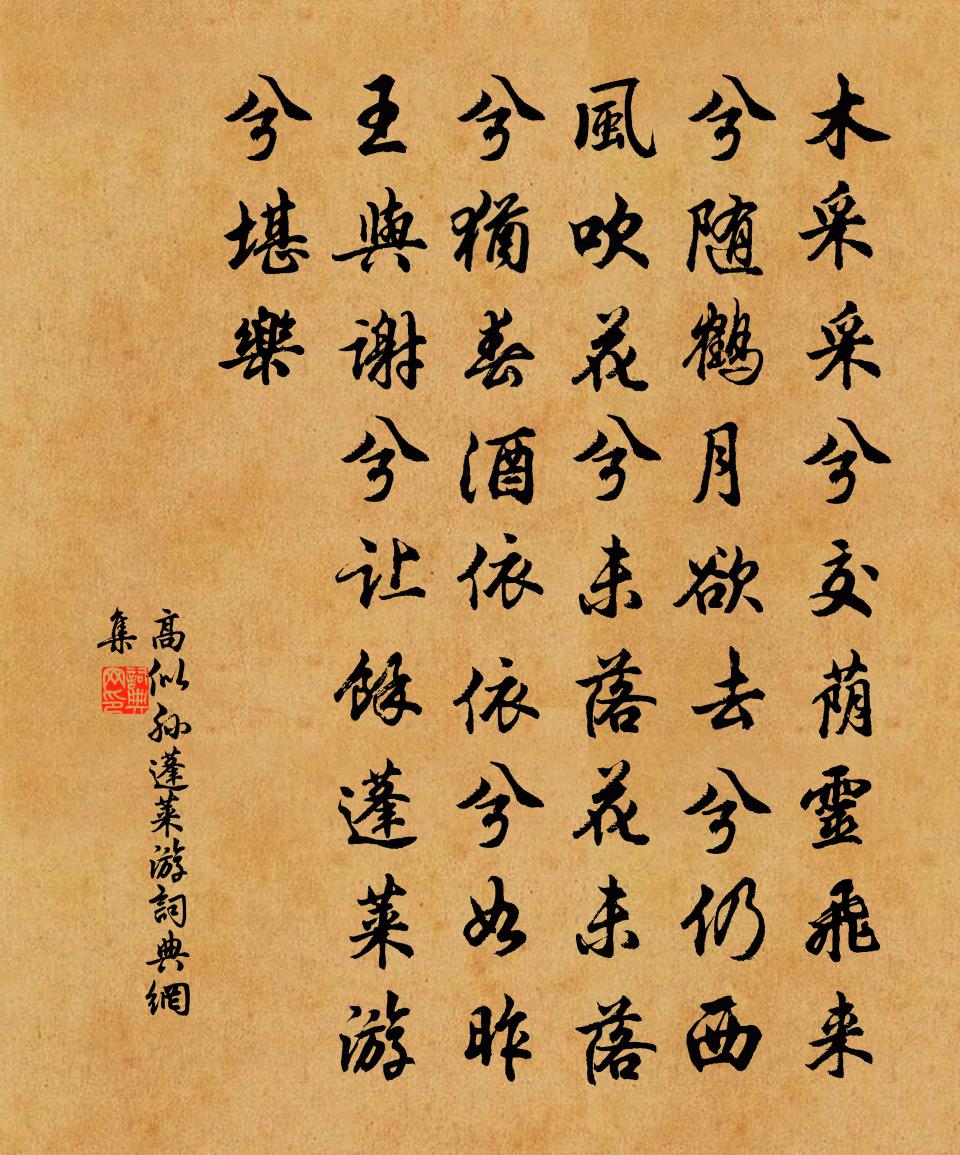 木采采兮交荫靈飛来
兮随鶴月欲去兮仍西
風吹花兮未落花未落
兮猶春酒依依兮如昨
王與谢兮让餘蓬莱游
兮堪樂
高似孙蓬莱游詞典網
集
詞典網印